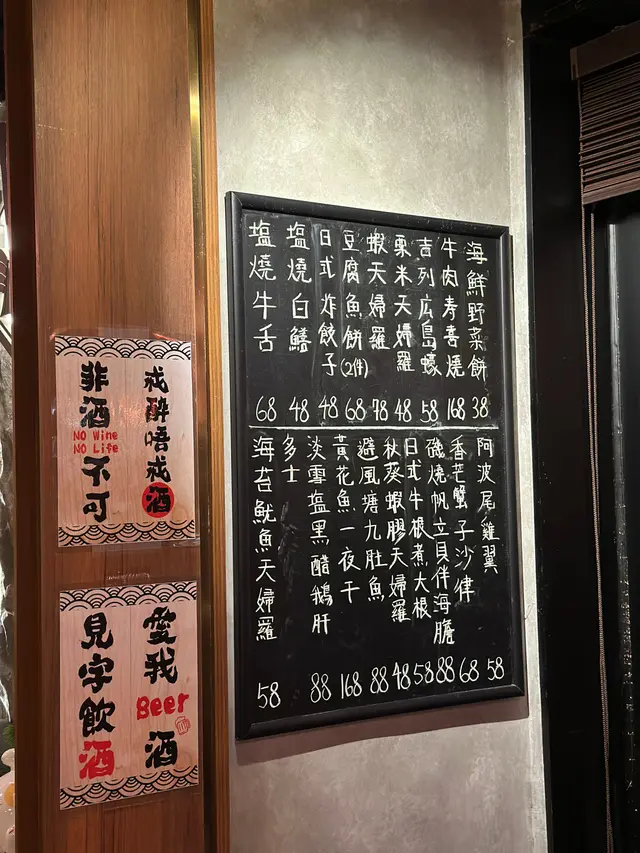 海鮮野菜餅 38
牛肉寿喜燒 168
吉列広島蠔 58
粟米天婦羅 48
蝦天婦羅 78
豆腐魚餅(2件) 68
日式炸餃子 48
塩燒白鱔 48
塩燒牛舌 68
阿波尾雞翼 58
香芒蟹子沙律 68
磯燒帆立貝伴海膽 88
日式牛根煮大根 58
秋葵蝦膠天婦羅 48
避風塘九肚魚 88
黃花魚一夜干 168
淡雪塩黑醋鵝肝 88
多士
海苔魷魚天婦羅 58
戒醉唔戒酒
非酒
NO Wine
NO Life
不可
愛我Beer酒
見字飲酒